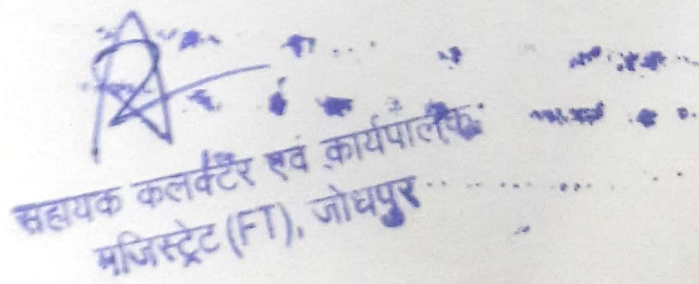 सहायक कलक्टर एवं कार्यपालक
मजिस्ट्रेट (FT), जोधपुर